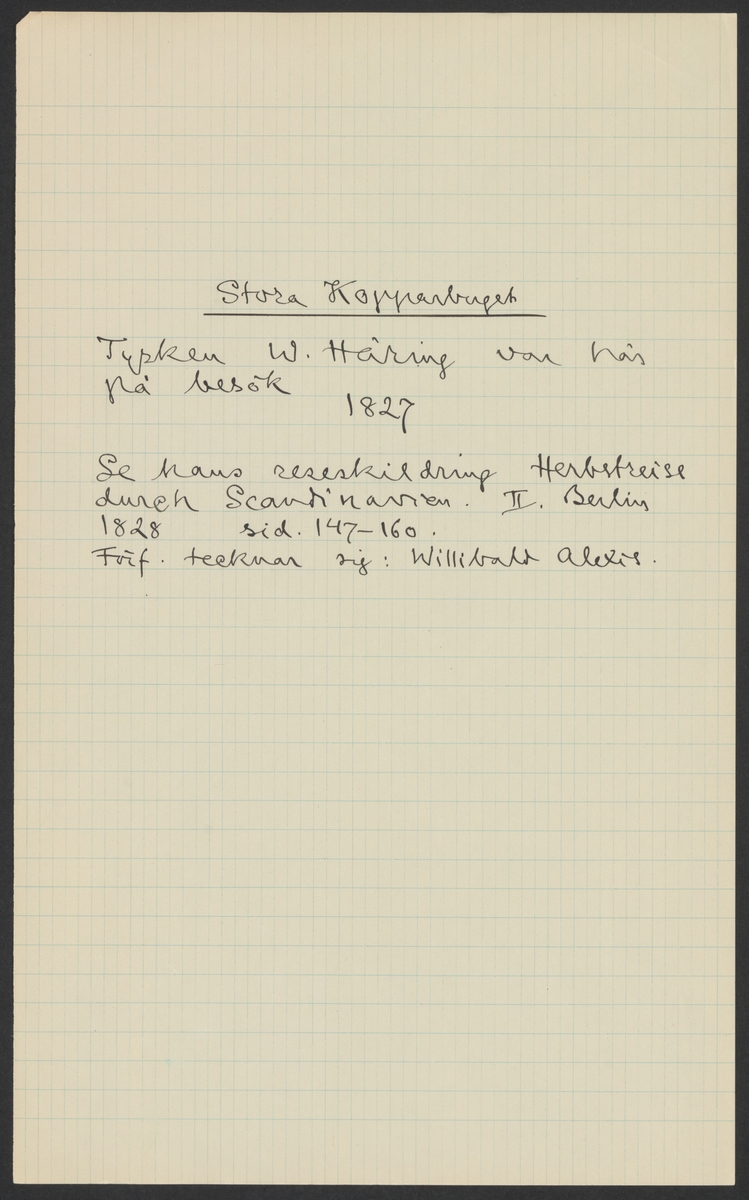 Stora Kopparberget
Tysken W. Häring var här
på besök
1827
Se hans reseskildring Herbstreise
durch Scandinavien. II. Berlin
1828 sid. 147-160.
Förf. tecknar sig: Willibald Alexis.